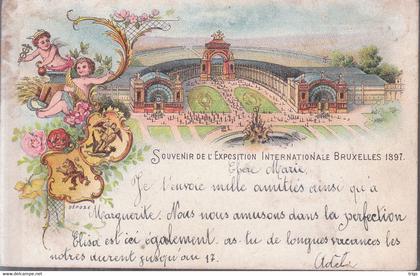 SOUVENIR DE L'EXPOSITION INTERNATIONALE BRUXELLES 1897.
Chère Marie
Je t'envoie mille amitiés ainsi qu'à
Marguerite. Nous nous amusons dans la perfection
Elisa est ici également. as-tu de longues vacances les
nôtres durent jusqu'au 17.
Adèle
DÉPOSÉ